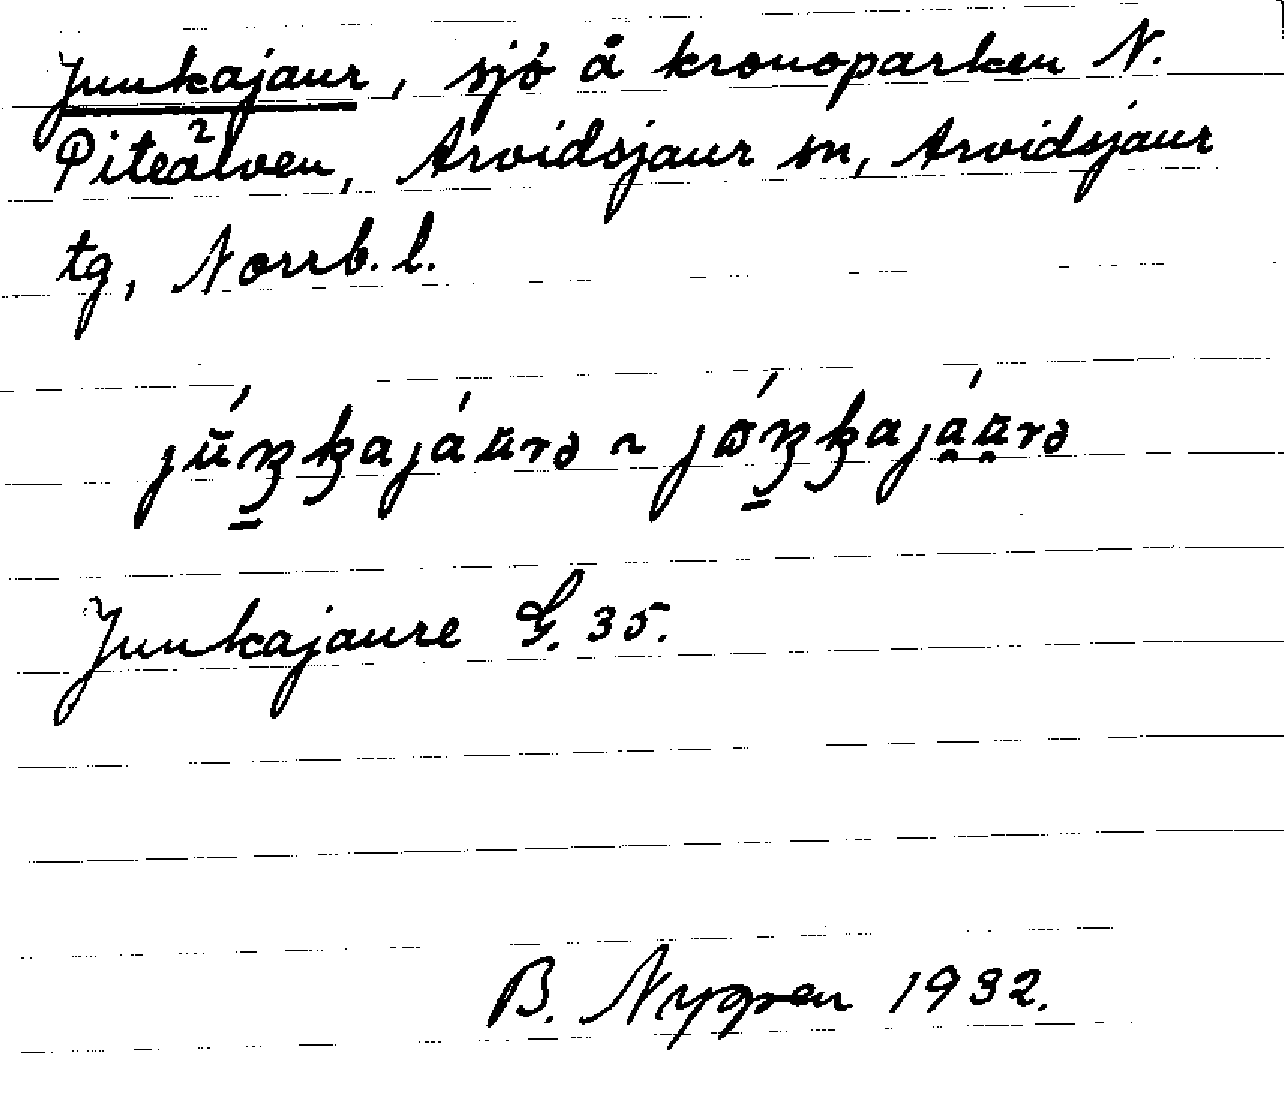 Junkajaur, sjö å kronoparken N.
Piteälven, Arvidsjaur sn, Arvidsjaur
tg, Norrb. l.
Junkajaure G. 35.
B. Nygren 1932.